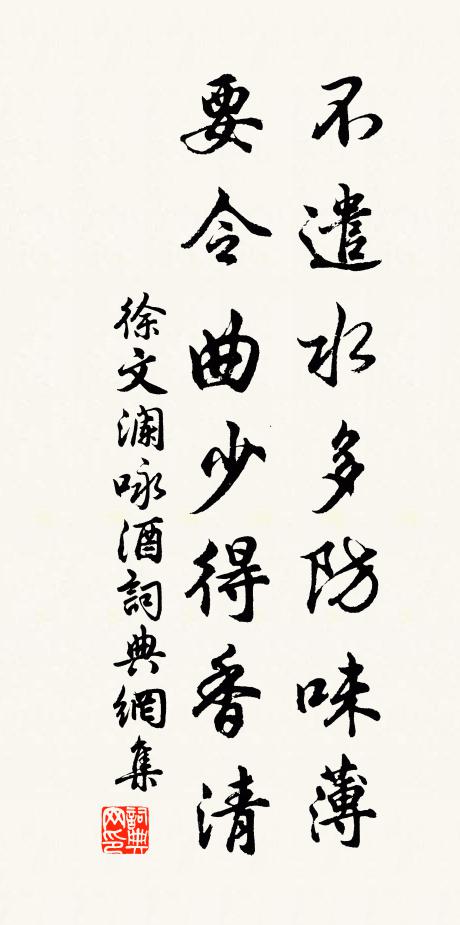 不遣水多防味薄
要令曲少得香清
徐文澜咏酒詞典網集
詞典
网印